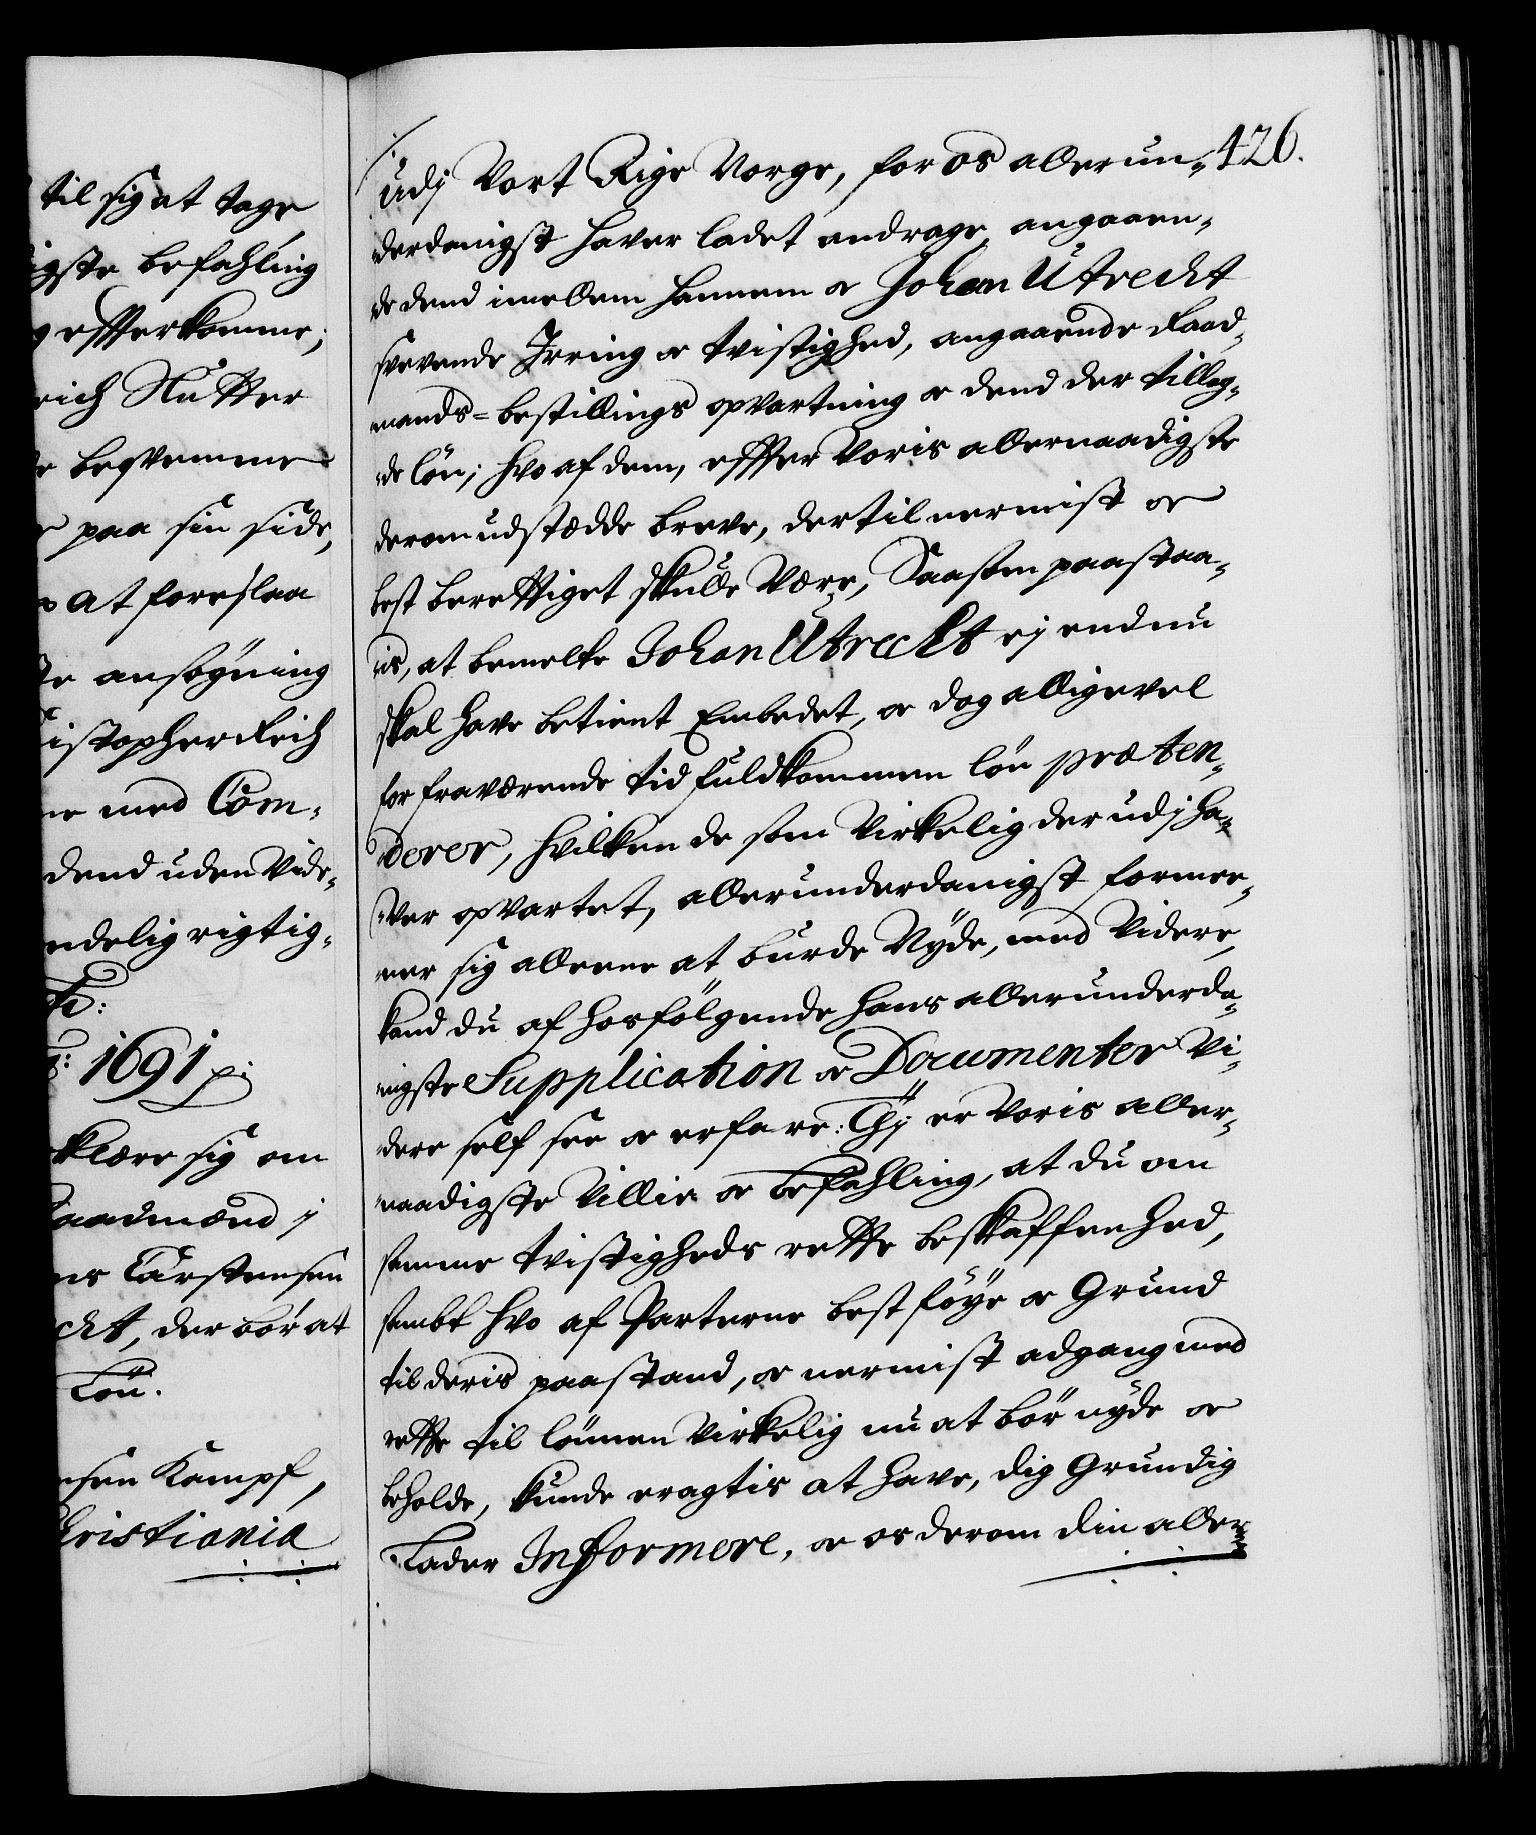 til sig at tage
igste befahling
g efftterkomme;
rich Nutter
de beqvemme
r paa sin side,
p at foreslaa
te ansøgning
istopher Reich
ne med Com-
dend uden Vide-
ndelig rigtig-
1691 p:
klere sig om
Raadmænd j
ns Carstensen
cht, der bör at
Lön.
nsen Kampf,
Christiania
426.
udj Vort Rige Norge, for os allerun-
derdanigst haver ladet andrage, angaaen-
de dend imellem hannem oc Johan Utrecht
svevende Irring oc tvistighed, angaaende Raad-
mands-bestillings opvartning oc dend der tillag-
de lön; hvo af dem, effter Voris allernaadigste
derom udstædde breve, dertil nermist oc
best berettiget skulle Være, Saasom paastaa-
is, at bemelte Johan Utrecht ej endnu
skal have betient Embedet, oc dog alligevel
for fraværende tid fuldkommen lön præten-
derer, hvilken de som Virkelig der udj ha-
ver opvartet, allerunderdanigst formee-
ner sig alleene at burde Nyde, med Videre,
kand du af hosfölgende hans allerunderda-
nigste Supplication oc Documenter Vi-
dere self see oc erfare: Thj er Voris aller-
naadigste Villie oc befahling, at du om
samme tvistigheds rette beskaffenhed,
sambt hvo af Parterne best föye oc Grund
til deris paastand, oc nermist adgang med
rette til lönnen Virkelig nu at bör nyde oc
beholde, kunde eragtis at have, dig Grundig
Lader Informere, oc os derom din aller-